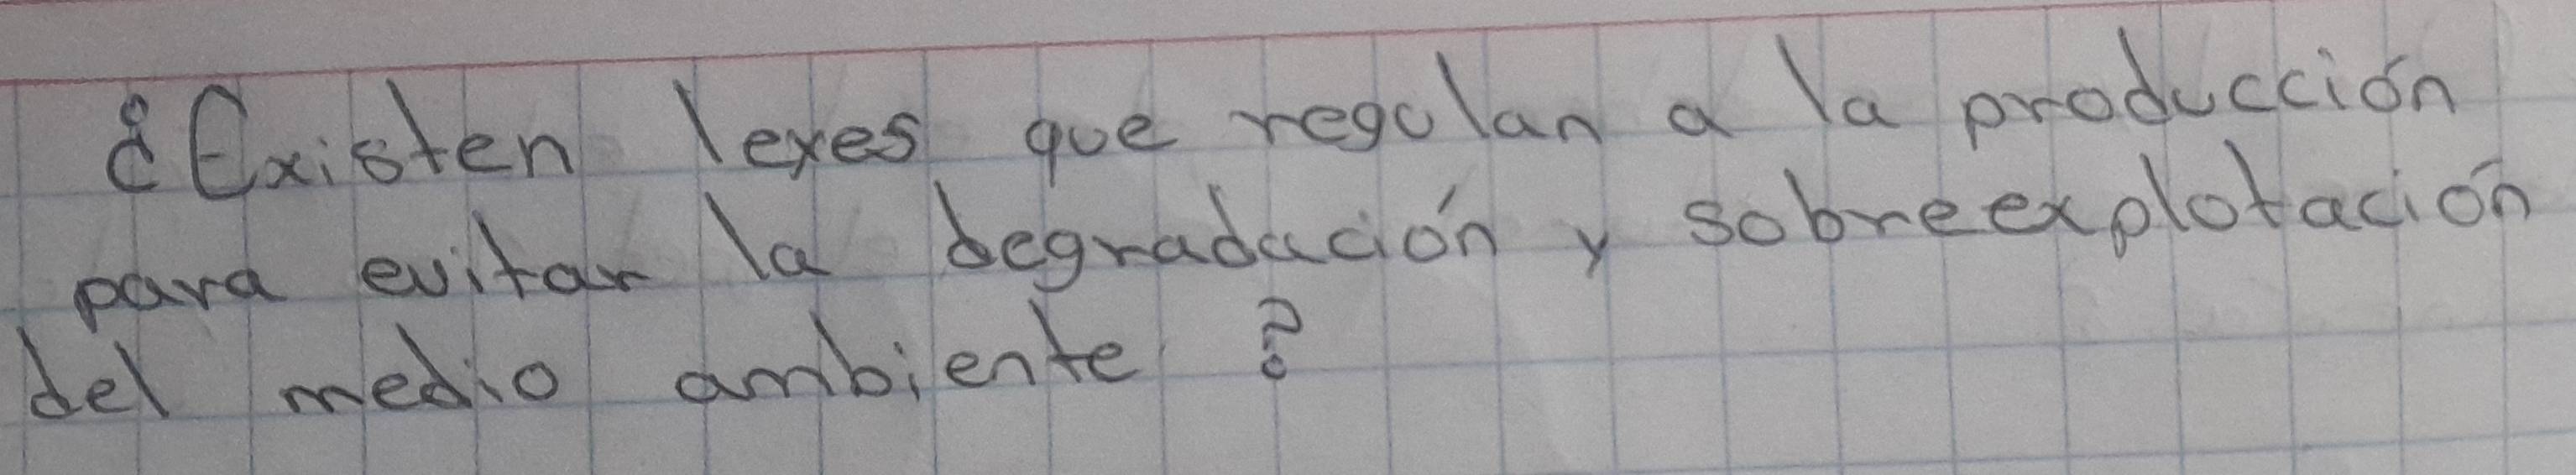 ¿Existen leyes que regulan a la producción
para evitar la degradación y sobreexplotación
del medio ambiente?